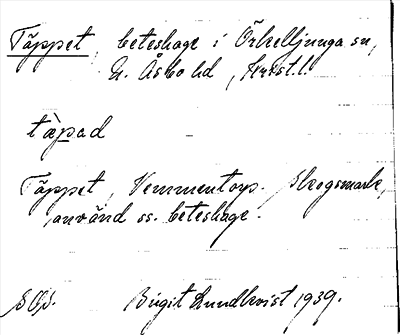 Täppet, beteshage i Örkelljunga sn,
N. Åsbo hd, Krist.l.
täpad
Täppet, Vemmentorp. Skogsmark,
använd ss. beteshage.
Birgit Lundkvist 1939.